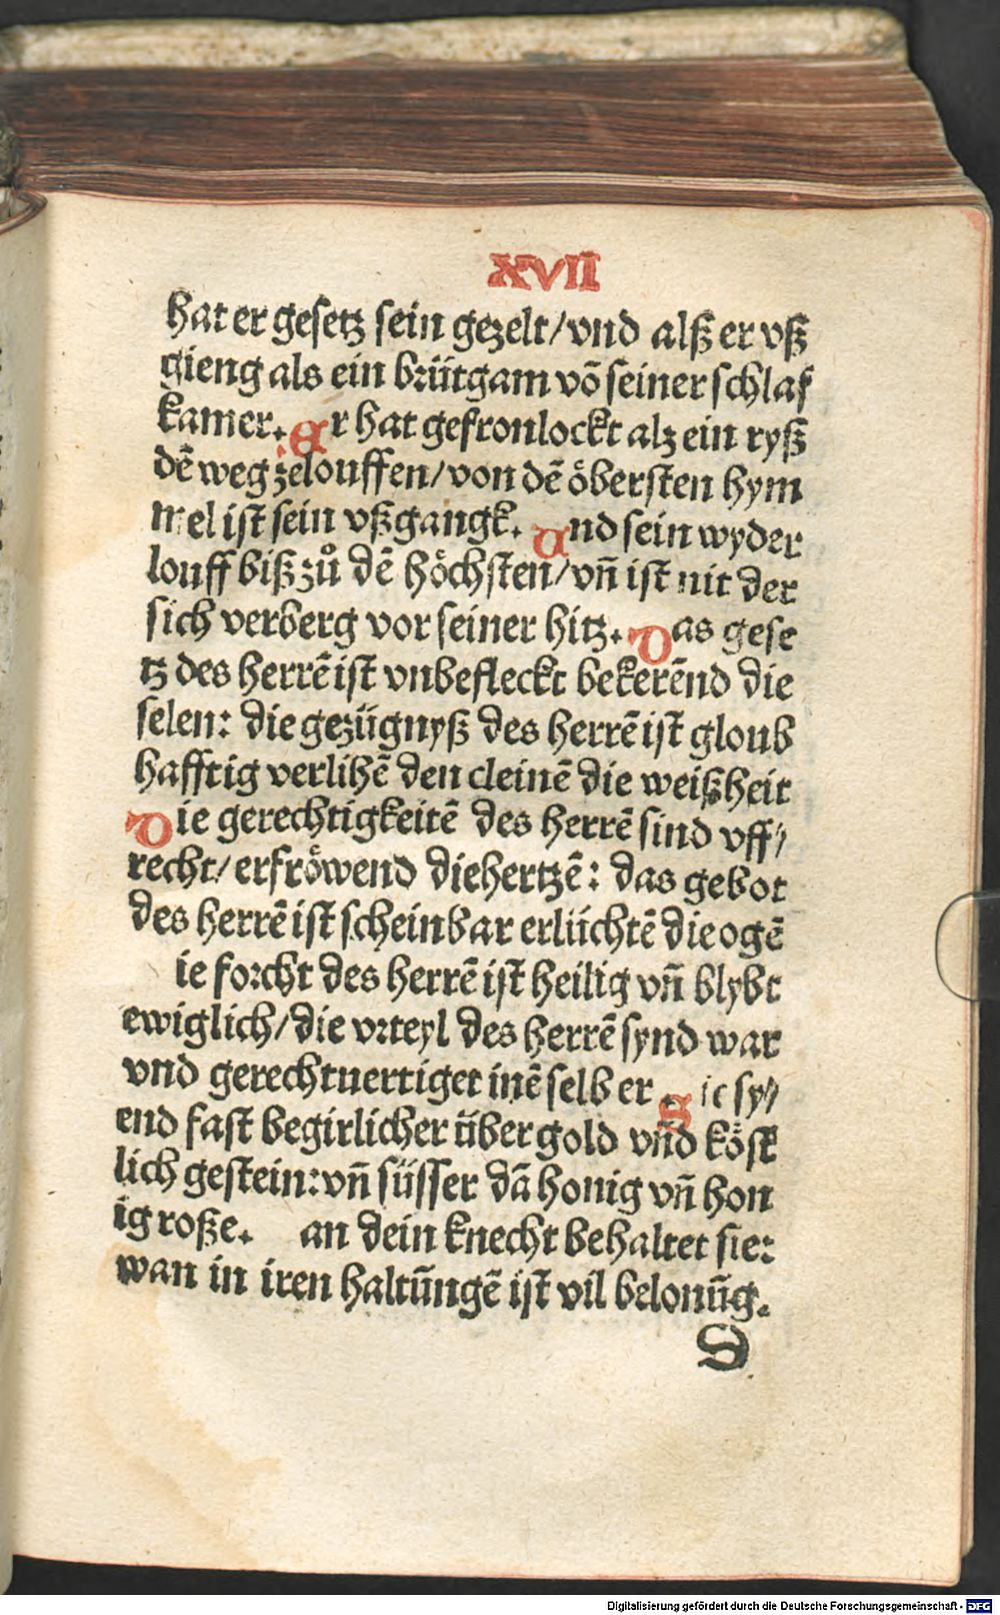 XVII
hat er gesetz sein gezelt/vnd alß er vß
gieng als ein brütgam võ seiner schlaf
kamer. Er hat gefronlockt alz ein ryß
dẽ weg zelouffen/von dẽ öbersten hym
mel ist sein vßgangk. Und sein wyder
louff biß zů dẽ höchsten/vñ ist nit der
sich verberg vor seiner hitz. Das gese
tz des herrẽ ist vnbefleckt bekerẽnd die
selen: die gezügnyß des herrẽ ist gloub
hafftig verlihẽ den cleinẽ die weißheit
Die gerechtigkeitẽ des herrẽ sind vff⸗
recht/erfröwend diehertzẽ: das gebot
des herrẽ ist scheinbar erlüchtẽ die ogẽ
ie forcht des herrẽ ist heilig vñ blybt
ewiglich/die vrteyl des herrẽ synd war
vnd gerechtuertiget inẽ selb er. Sie sy⸗
end fast begirlicher über gold vñd köst
lich gestein: vñ süsser dã honig vñ hon
ig roße. an dein knecht behaltet sie:
wan in iren haltũngẽ ist vil belonũg.
D
Digitalisierung gefördert durch die Deutsche Forschungsgemeinschaft - DFG